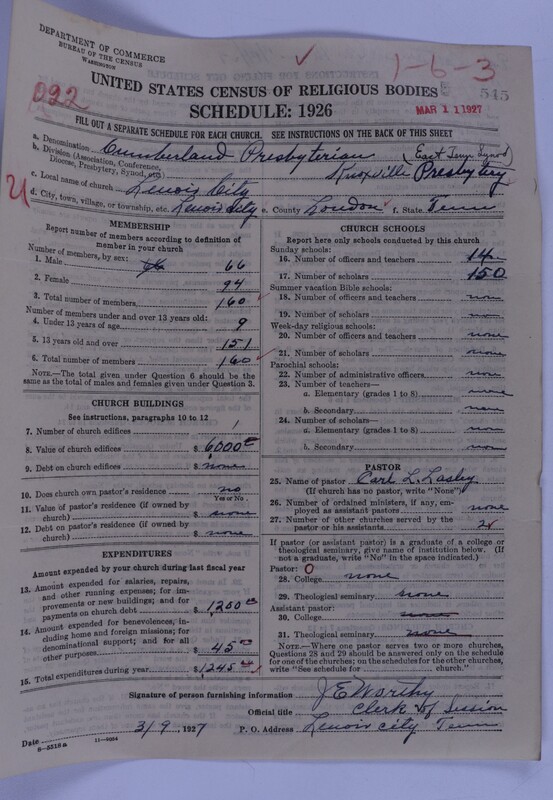 DEPARTMENT OF COMMERCE
BUREAU OF THE CENSUS
WASHINGTON
1-6-3
UNITED STATES CENSUS OF RELIGIOUS BODIES
545
022
SCHEDULE: 1926
MAR 11 1927
FILL OUT A SEPARATE SCHEDULE FOR EACH CHURCH. SEE INSTRUCTIONS ON THE BACK OF THIS SHEET
a. Denomination Cumberland Presbyterian (East Tenn Synod)
b. Division (Association, Conference, Diocese, Presbytery, Synod, etc.) Knoxville Presbytery
c. Local name of church Lenoir City
d. City, town, village, or township, etc. Lenoir City e. County Loudon f. State Tenn
MEMBERSHIP
Report number of members according to definition of
member in your church
Number of members, by sex:
1. Male 66
2. Female 94
3. Total number of members 160
Number of members under and over 13 years old:
4. Under 13 years of age 9
5. 13 years old and over 151
6. Total number of members 160
NOTE.—The total given under Question 6 should be the
same as the total of males and females given under Question 3.
CHURCH BUILDINGS
See instructions, paragraphs 10 to 12
7. Number of church edifices 1
8. Value of church edifices $ 6,000
9. Debt on church edifices $ none
10. Does church own pastor's residence no
Yes or No
11. Value of pastor's residence (if owned by
church) $ none
12. Debt on pastor's residence (if owned by
church) $ none
EXPENDITURES
Amount expended by your church during last fiscal year
13. Amount expended for salaries, repairs,
and other running expenses; for im-
provements or new buildings; and for
payments on church debt $ 1200
14. Amount expended for benevolences, in-
cluding home and foreign missions; for
denominational support; and for all
other purposes $ 45
15. Total expenditures during year $ 1245
CHURCH SCHOOLS
Report here only schools conducted by this church
Sunday schools:
16. Number of officers and teachers 14
17. Number of scholars 150
Summer vacation Bible schools:
18. Number of officers and teachers none
19. Number of scholars none
Week-day religious schools:
20. Number of officers and teachers none
21. Number of scholars none
Parochial schools:
22. Number of administrative officers none
23. Number of teachers—
a. Elementary (grades 1 to 8) none
b. Secondary none
24. Number of scholars—
a. Elementary (grades 1 to 8) none
b. Secondary none
PASTOR
25. Name of pastor Carl L. Lasley
(If church has no pastor, write "None")
26. Number of ordained ministers, if any, em-
ployed as assistant pastors none
27. Number of other churches served by the
pastor or his assistants 2
If pastor (or assistant pastor) is a graduate of a college or
theological seminary, give name of institution below. (If
not a graduate, write "No" in the space indicated.)
Pastor: 0
28. College none
29. Theological seminary none
Assistant pastor:
30. College none
31. Theological seminary none
NOTE.—Where one pastor serves two or more churches,
Questions 28 and 29 should be answered only on the schedule
for one of the churches; on the schedules for the other churches,
write "See schedule for church."
Signature of person furnishing information J E Worthy
Official title Clerk of Session
Date 3/9, 1927 P. O. Address Lenoir City Tenn
8-5518a 11-9094